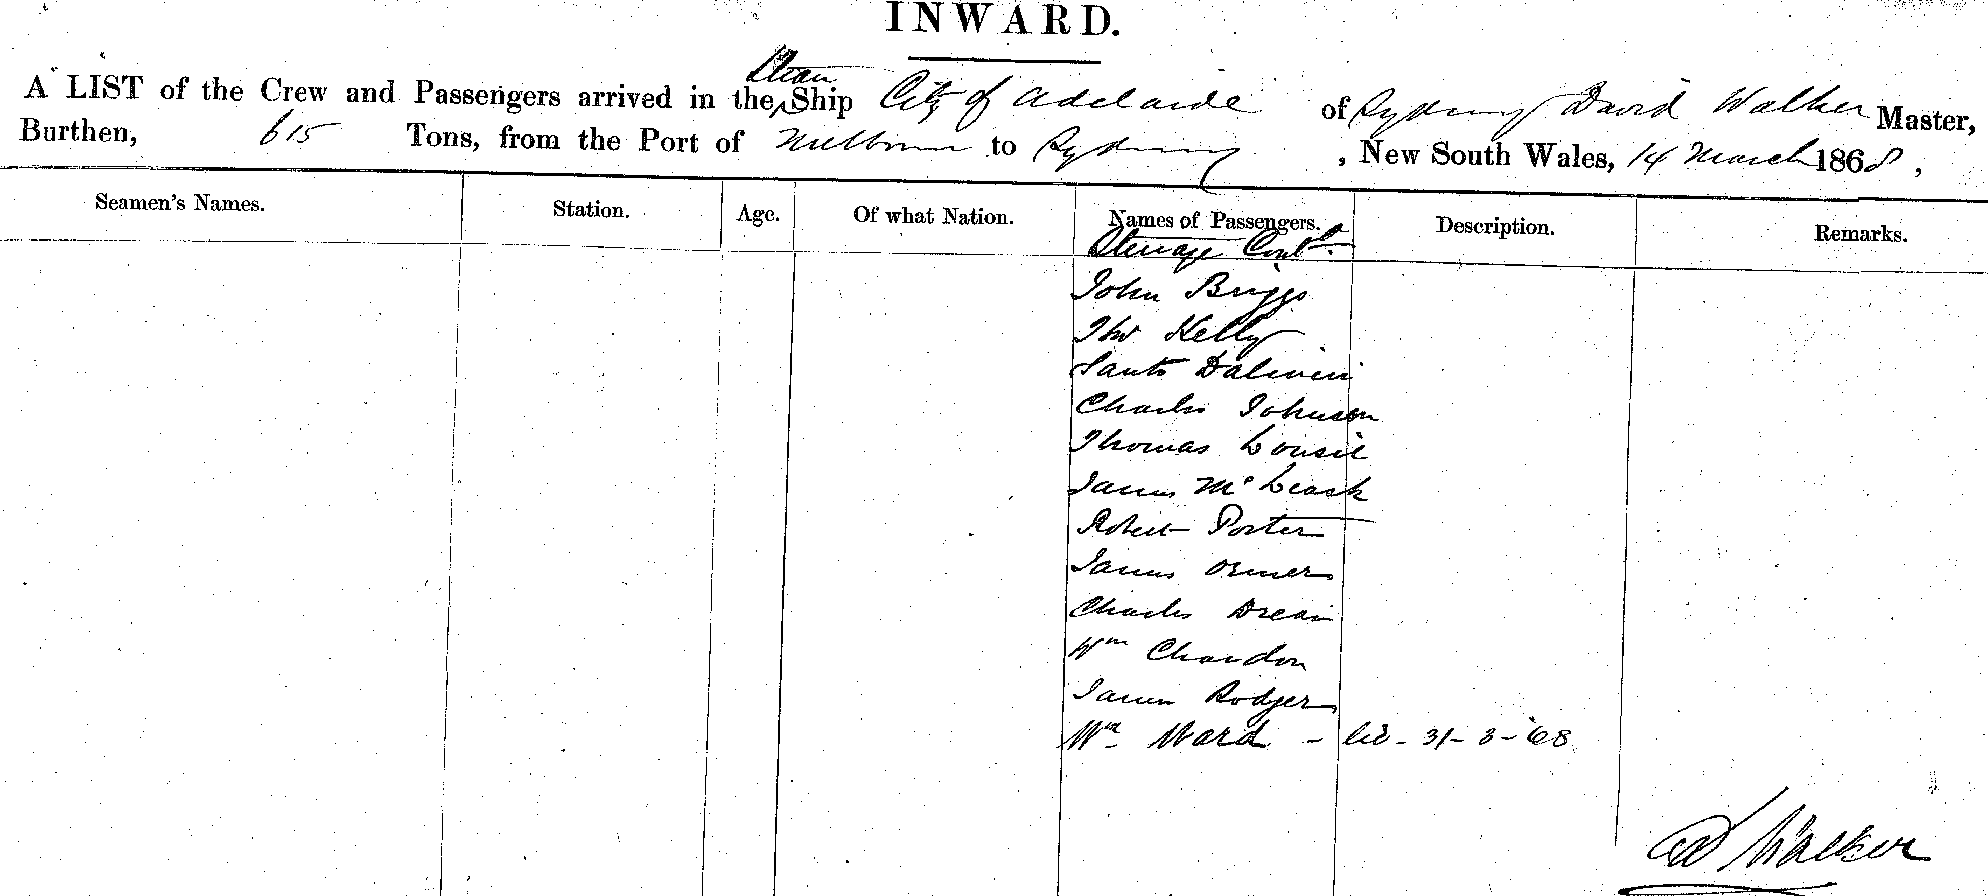 INWARD.
Steam
A LIST of the Crew and Passengers arrived in the Ship City of Adelaide of Sydney David Walker Master,
Burthen, 615 Tons, from the Port of Melbourne to Sydney, New South Wales, 14 March 1868,
Seamen's Names. Station. Age. Of what Nation. Names of Passengers. Description. Remarks.
Steerage Contd.
John Briggs
Thos Kelly
Charles Johnson
Thomas
James Mc Leask
Robert Porter
James
Charles
Wm Chardon
James Rodger
Wm Ward - 31-3-'68
D Walker